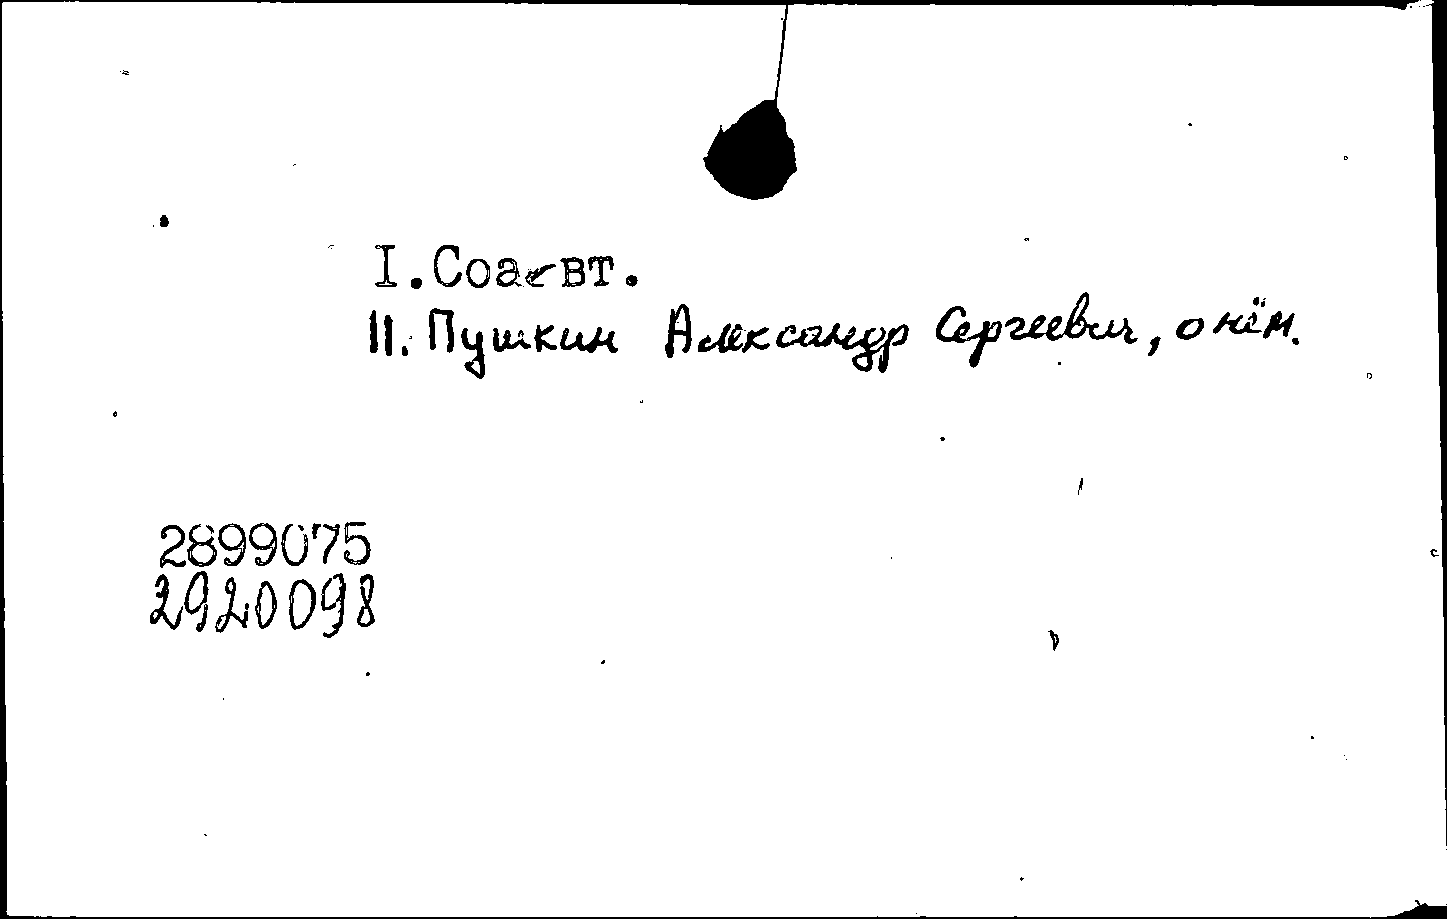 I. Соавт.
II. Пушкин Александр Сергеевич, о нём.
2899075
2920098